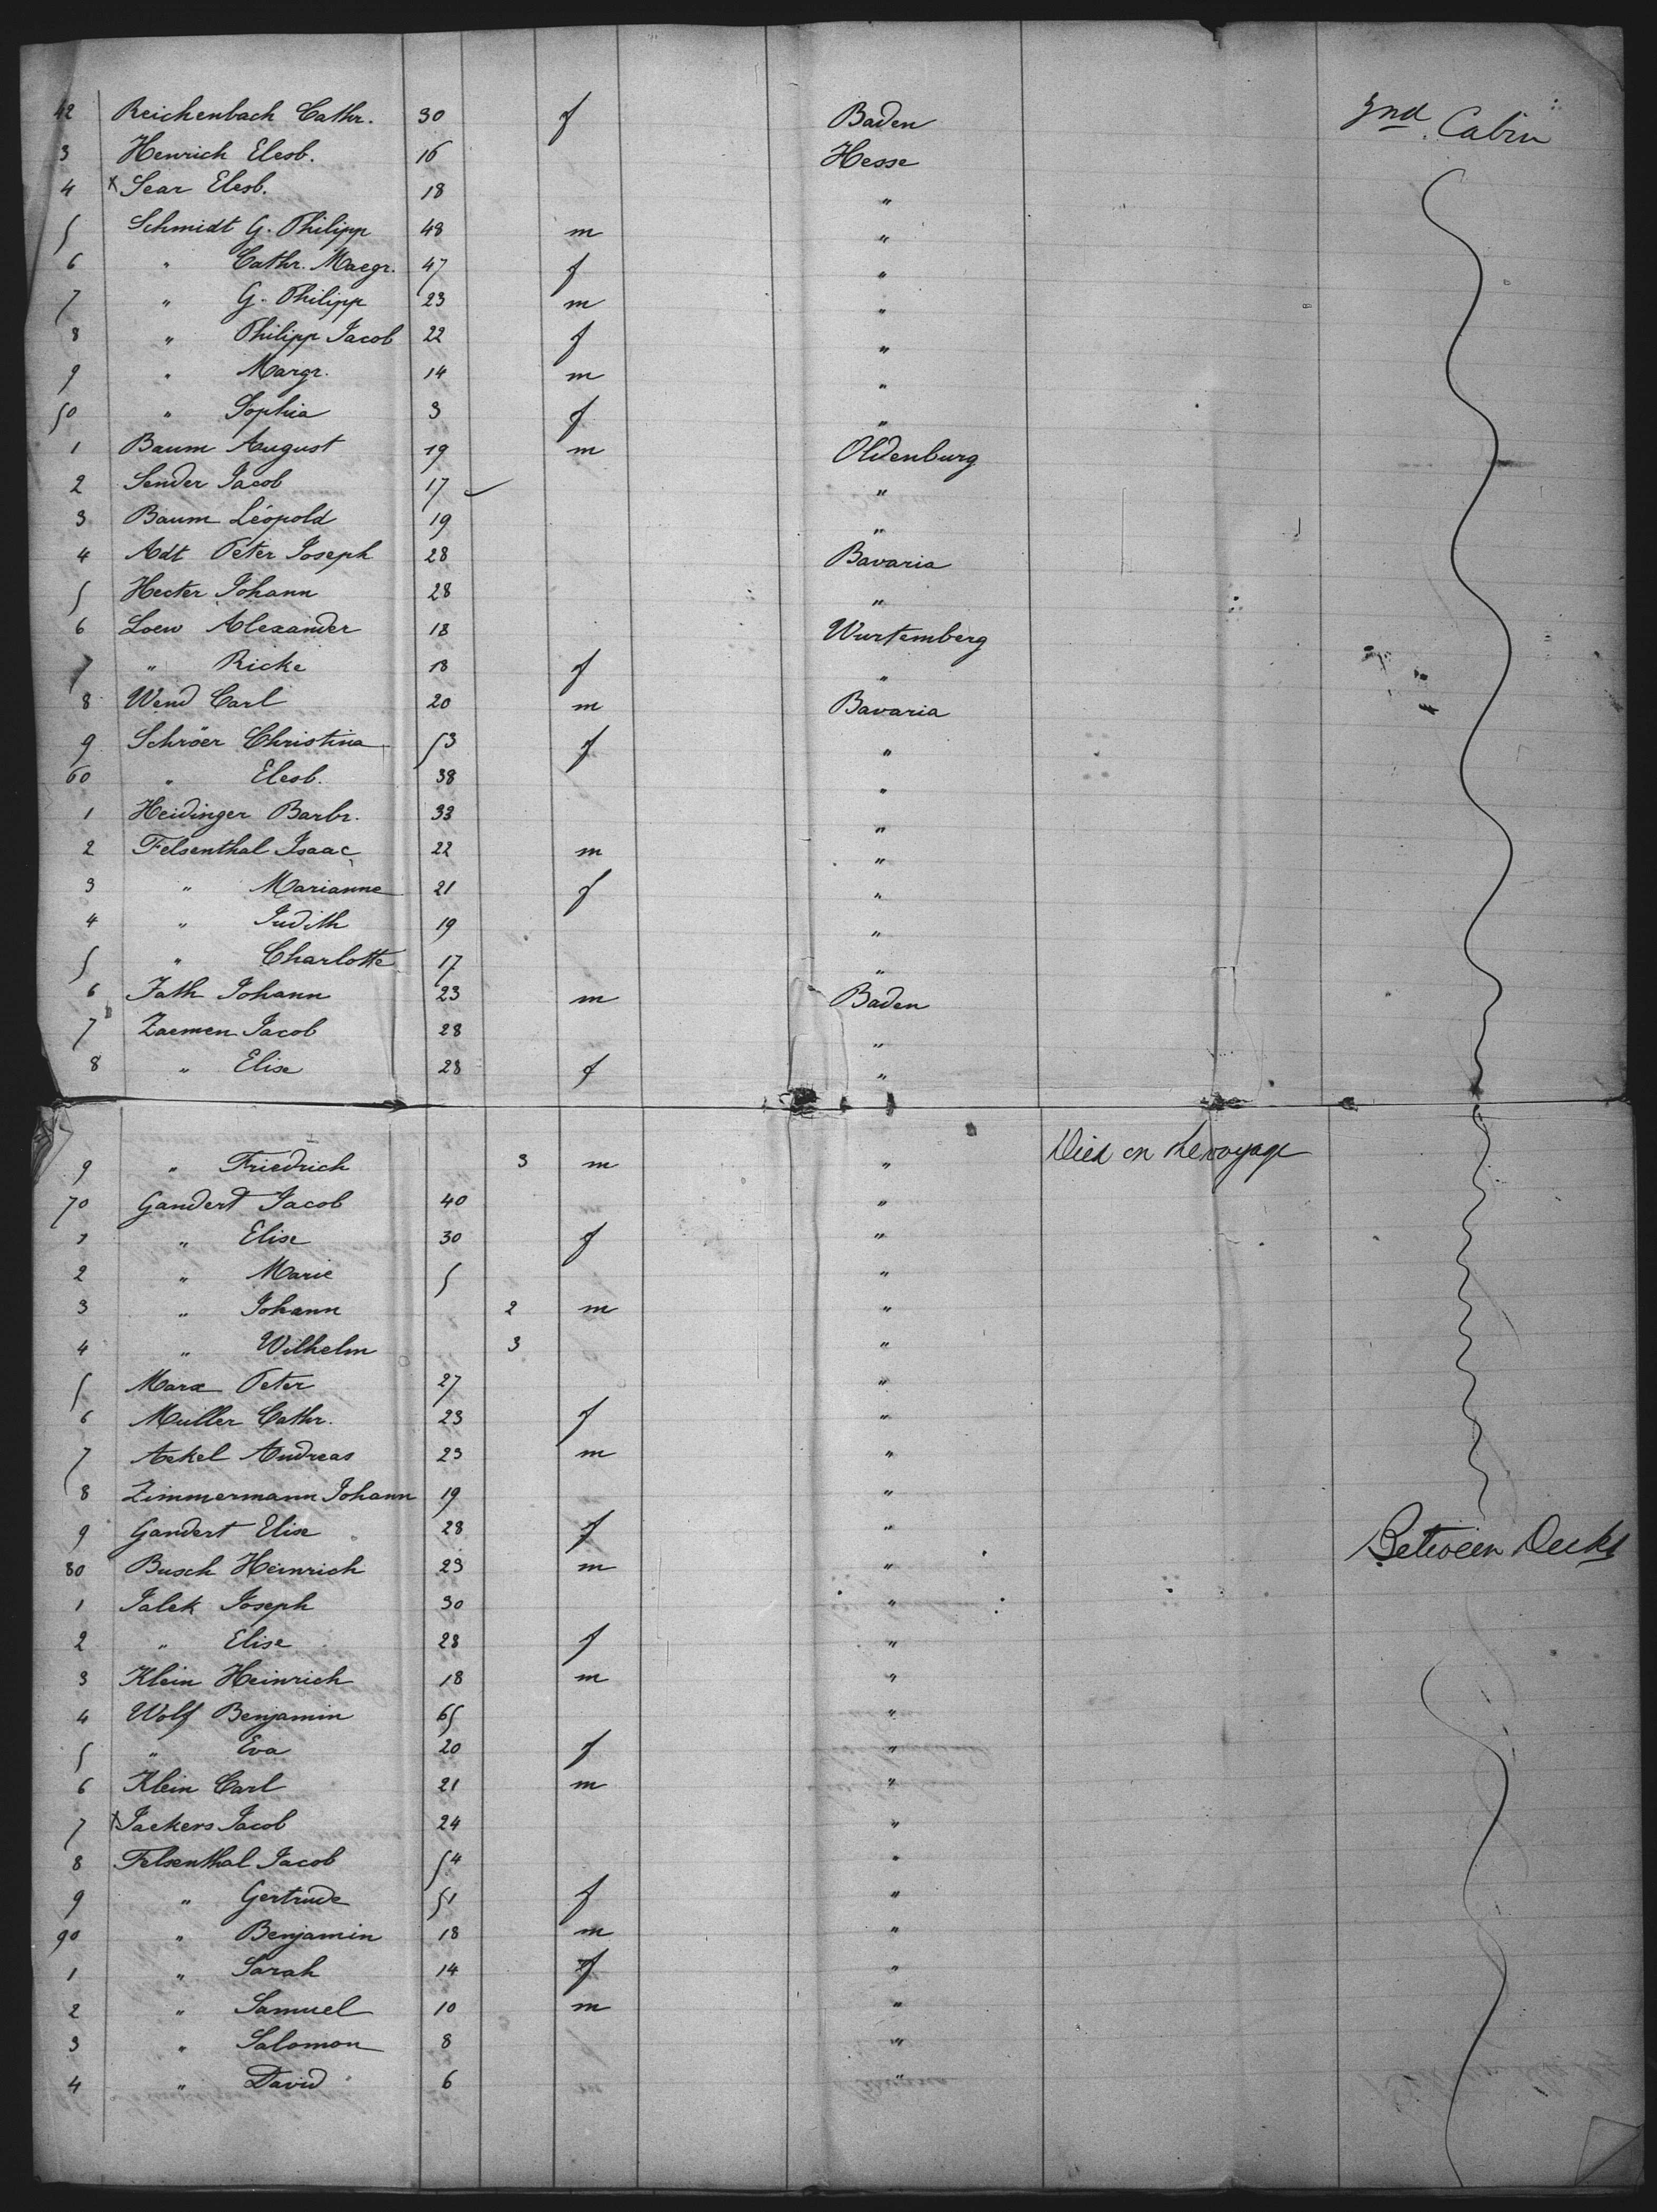 42 Reichenbach Cathr. 30 f Baden 2nd Cabin
3 Henrich Elesb. 16 Hesse
4 x Sear Elesb. 18 "
5 Schmidt G. Philipp 48 m "
6 " Cathr. Maegr. 47 f "
7 " G. Philipp 23 m "
8 " Philipp Jacob 22 f "
9 " Margr. 14 m "
50 " Sophia 3 f "
1 Baum August 19 m Oldenburg
2 Sender Jacob 17 "
3 Baum Léopold 19 "
4 Adt Peter Joseph 28 Bavaria
5 Hecter Johann 28 "
6 Loew Alexander 18 Wurtemberg
7 " Ricke 18 f "
8 Wend Carl 20 m Bavaria
9 Schröer Christina 53 f "
60 " Elesb. 38 "
1 Heidinger Barbr. 33 "
2 Felsenthal Isaac 22 m "
3 " Marianne 21 f "
4 " Judith 19 "
5 " Charlotte 17 "
6 Fath Johann 23 m Baden
7 Zaemen Jacob 28 "
8 " Elise 28 f "
9 " Friedrich 3 m " Died on the voyage
70 Gandert Jacob 40 "
1 " Elise 30 f "
2 " Marie 5 "
3 " Johann 2 m "
4 " Wilhelm 3 "
5 Marx Peter 27 "
6 Muller Cathr. 23 f "
7 Aekel Andreas 23 m "
8 Zimmermann Johann 19 "
9 Gandert Elise 28 f " Between Decks
80 Busch Heinrich 23 m "
1 Jalek Joseph 30 "
2 " Elise 28 f "
3 Klein Heinrich 18 m "
4 Wolf Benjamin 65 "
5 " Eva 20 f "
6 Klein Carl 21 m "
7 x Jackers Jacob 24 "
8 Felsenthal Jacob 54 "
9 " Gertrude 51 f "
90 " Benjamin 18 m "
1 " Sarah 14 f "
2 " Samuel 10 m "
3 " Salomon 8 "
4 " David 6 "